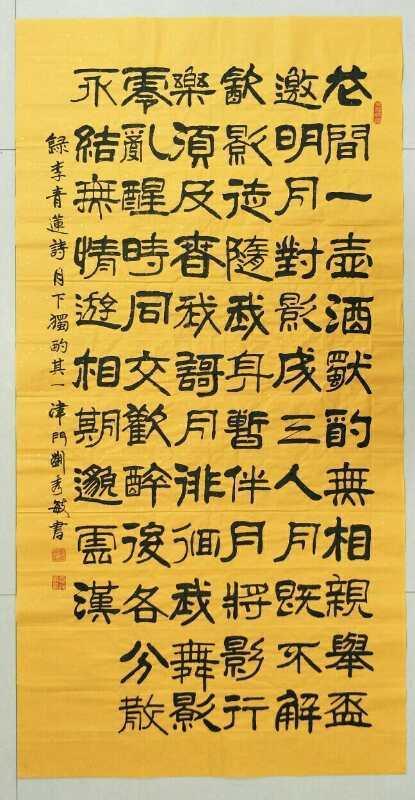 花間一壺酒獨酌無相親舉盃
邀明月對影成三人月既不解
飲影徒隨我身暫伴月將影行
樂須及春我謌月徘徊我舞影
零亂醒時同交歡醉後各分散
永結無情遊相期邈雲漢
錄李青蓮詩月下獨酌其一津門劉秀敏書